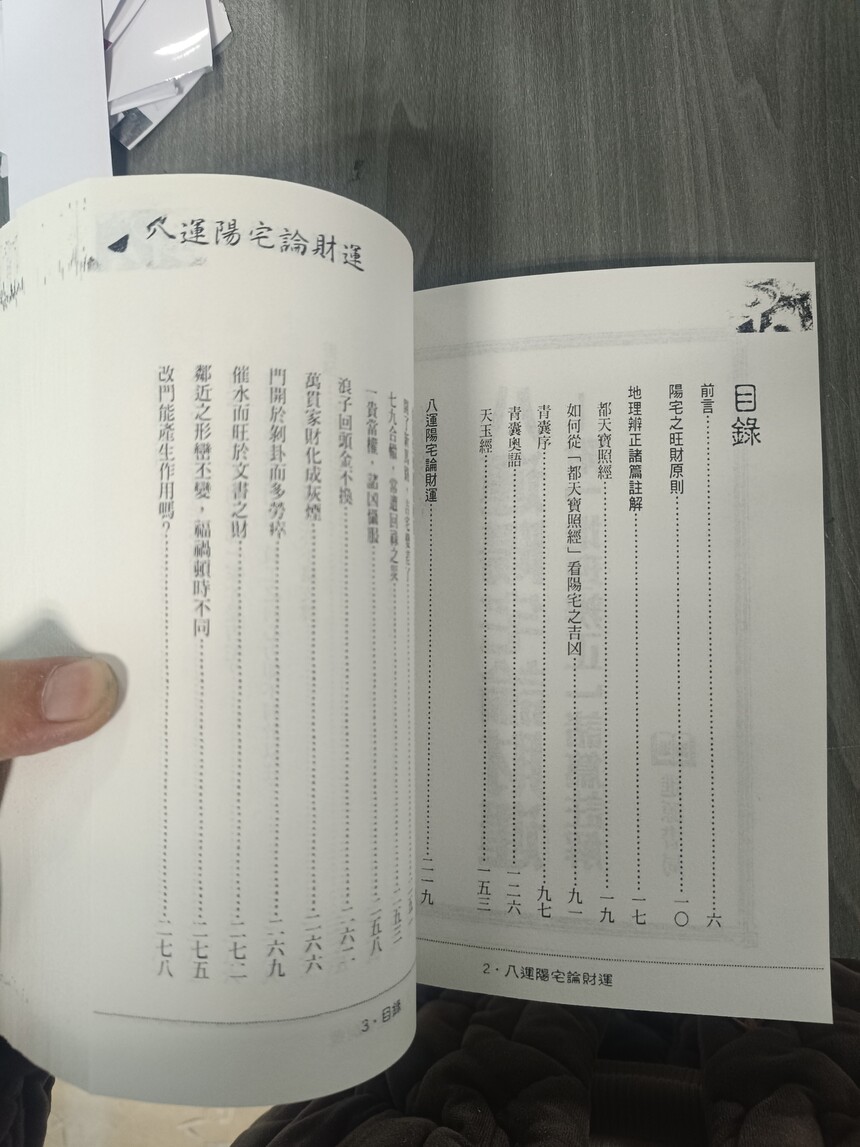 目錄
前言⋯⋯六
陽宅之旺財原則⋯⋯一〇
地理辨正諸篇註解⋯⋯一七
都天寶照經⋯⋯一九
如何從「都天寶照經」看陽宅之吉凶⋯⋯九一
青囊序⋯⋯九七
青囊奧語⋯⋯一二六
天玉經⋯⋯一五三
八運陽宅論財運⋯⋯二一九
2・八運陽宅論財運
八運陽宅論財運
七九合轍，常遭回祿之災⋯⋯二五三
一貴當權，諸凶懾服⋯⋯二五八
浪子回頭金不換⋯⋯二六二
萬貫家財化成灰煙⋯⋯二六六
門開於剝卦而多勞瘁⋯⋯二六九
催水而旺於文書之財⋯⋯二七二
鄰近之形巒丕變，福禍頓時不同⋯⋯二七五
改門能產生作用嗎？⋯⋯二七八
3・目錄